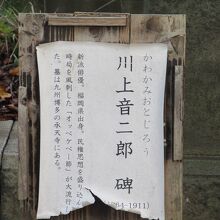 かわかみおとじろう
川上音二郎 碑
(1864-1911)
新派俳優。福岡県出身。民権思想を盛り込ん
時局を風刺した「オッペケペー節」が大流行し
た。墓は九州博多の承天寺にある。